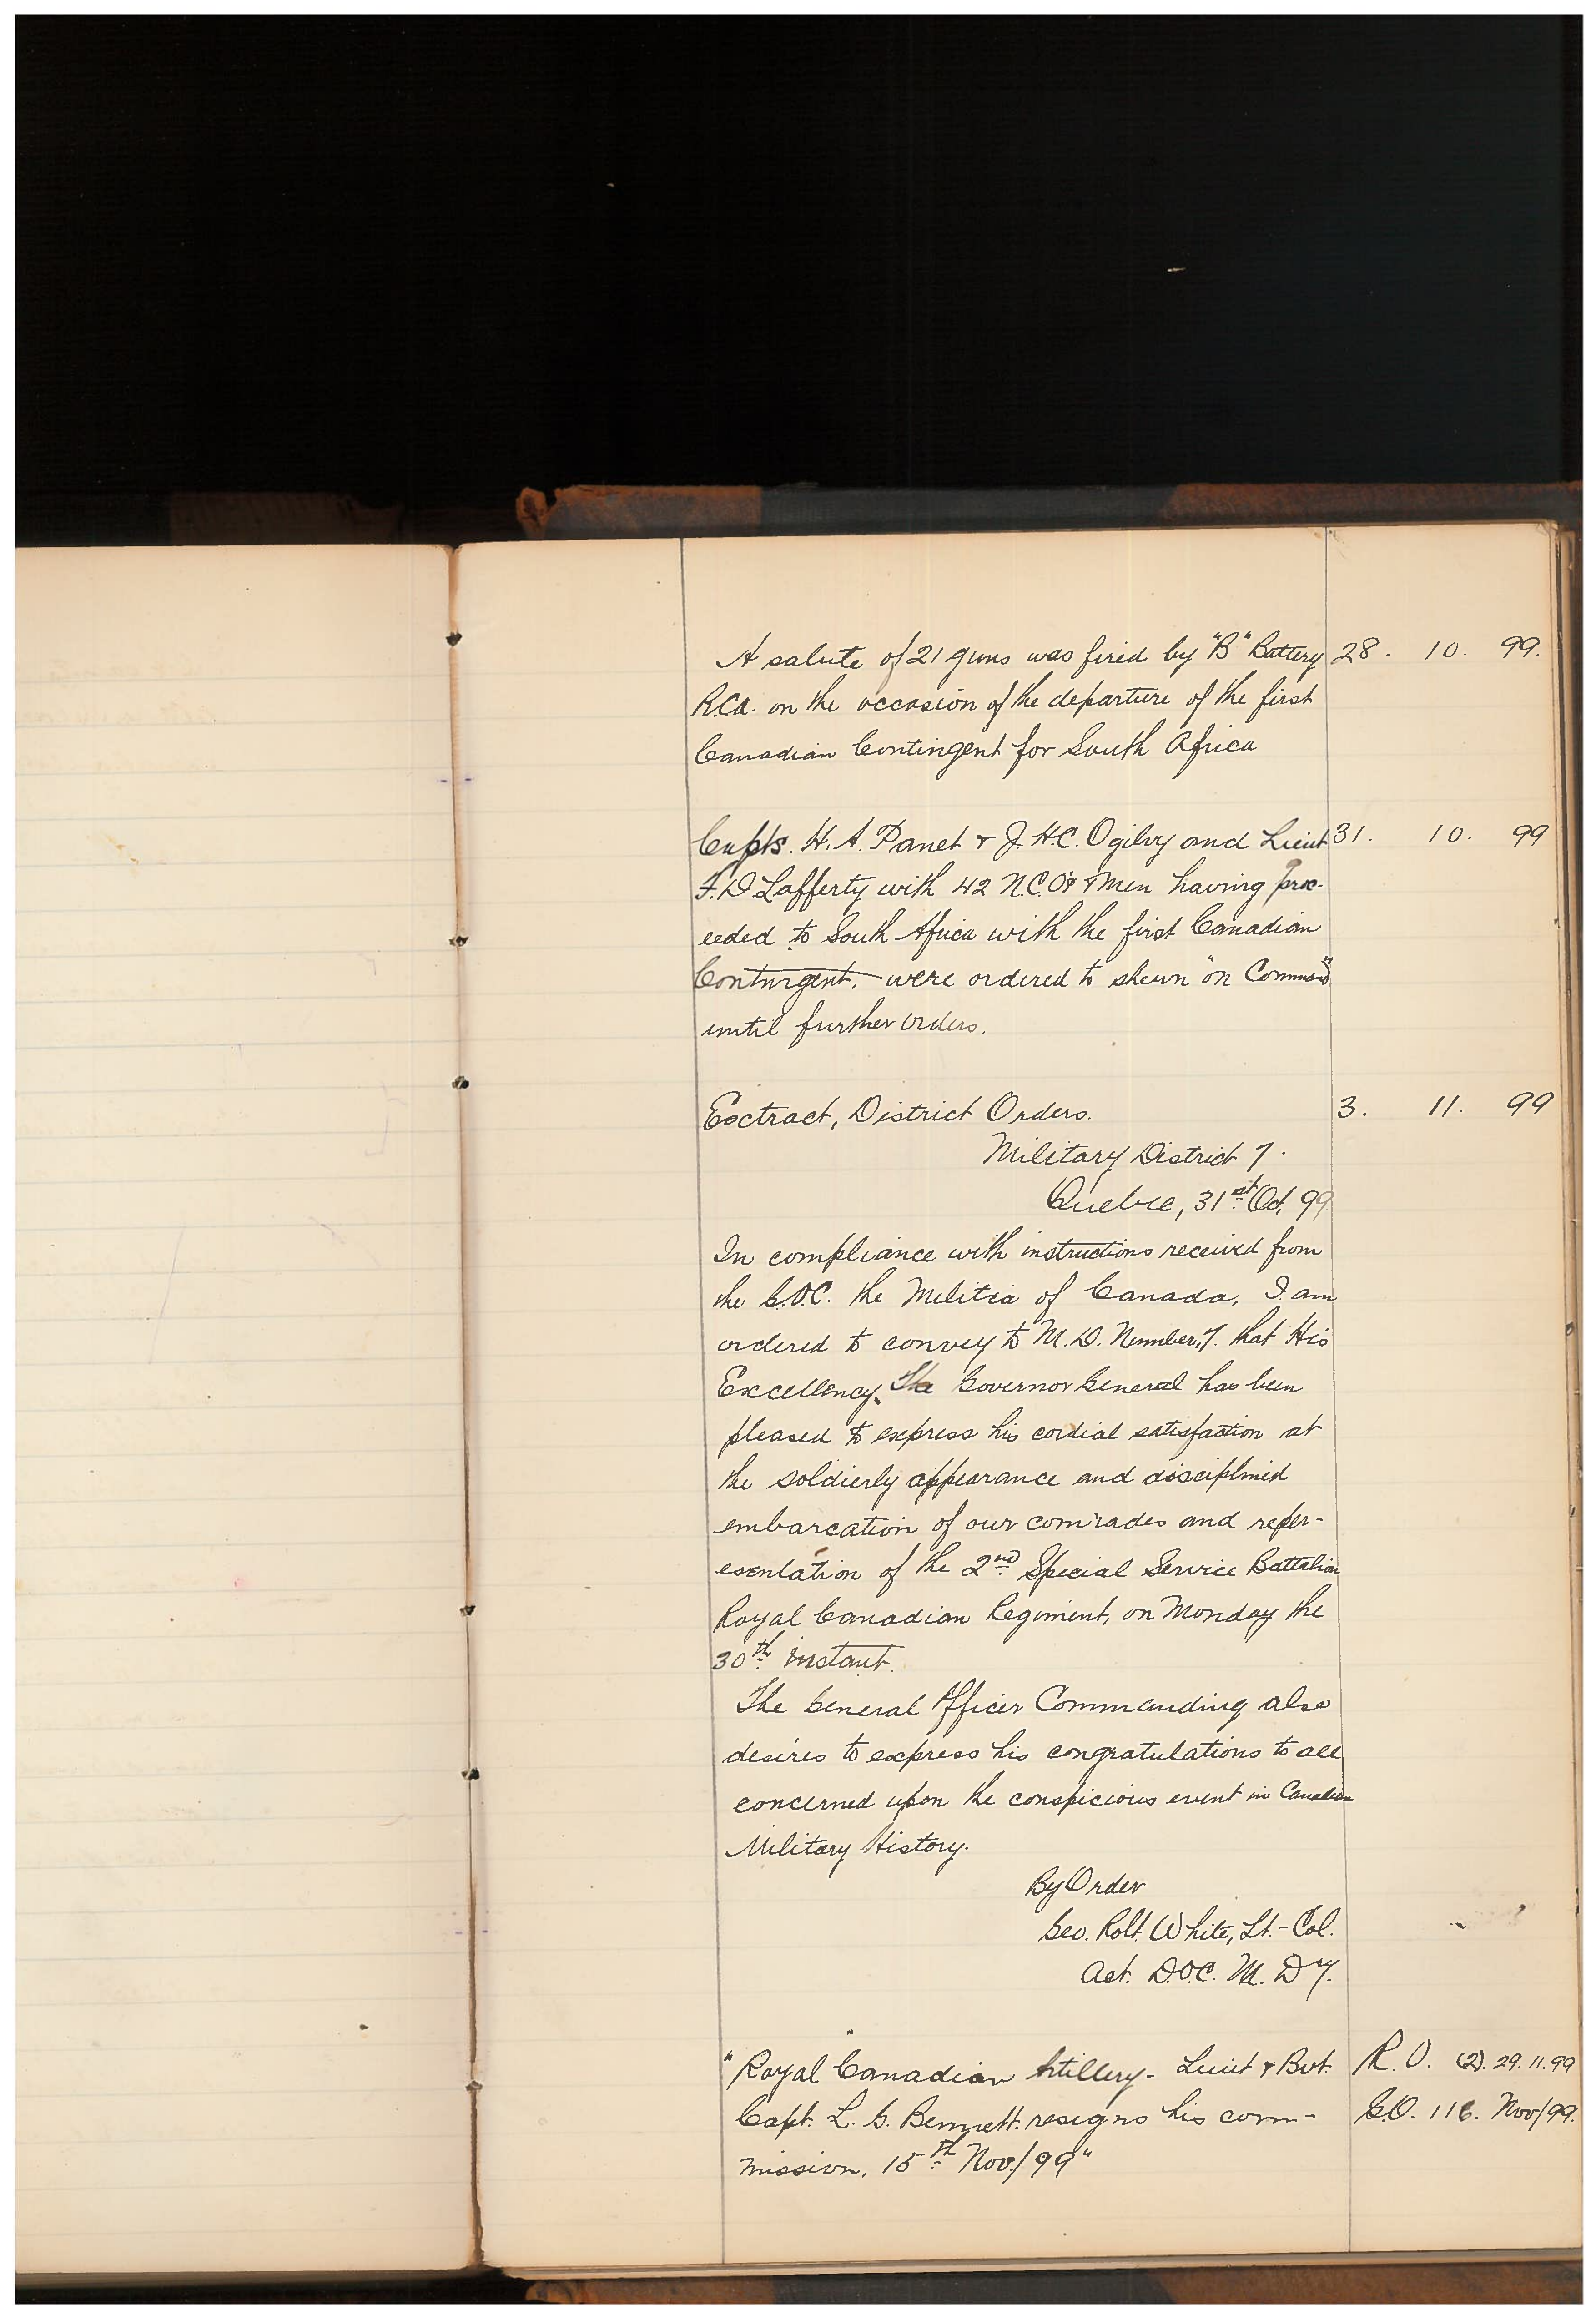 A salute of 21 guns was fired by "B" Battery 28. 10. 99.
R.C.A. on the occasion of the departure of the first
Canadian Contingent for South Africa
Capts. H. A. Panet & J. H. C. Ogilvy and Lieut 31. 10. 99
F. D Lafferty with 42 N.C.O's & Men having proc-
eeded to South Africa with the first Canadian
Contingent, were ordered to shewn "on Command"
until further orders.
Extract, District Orders. 3. 11. 99
Military District 7.
Quebec, 31st Oct, 99
In compliance with instructions received from
the G.O.C. the Militia of Canada, I am
ordered to convey to M. D. Number, 7. that His
Excellency, The Governor General has been
pleased to express his cordial satisfaction at
the soldierly appearance and disciplined
embarcation of our comrades and reper-
esentation of the 2nd Special Service Battalion
Royal Canadian Regiment, on Monday the
30th instant.
The General Officer Commanding also
desires to express his congratulations to all
concerned upon the conspicious event in Canadian
Military History.
By Order
Geo. Rolt. White, Lt.-Col.
Act. D.O.C. M. D 7.
"Royal Canadian Artillery - Lieut & Bvt. R. O. (2). 29. 11. 99
Capt. L. G. Bennett resigns his com- G.O. 116. Nov/99.
mission, 15th Nov./99"